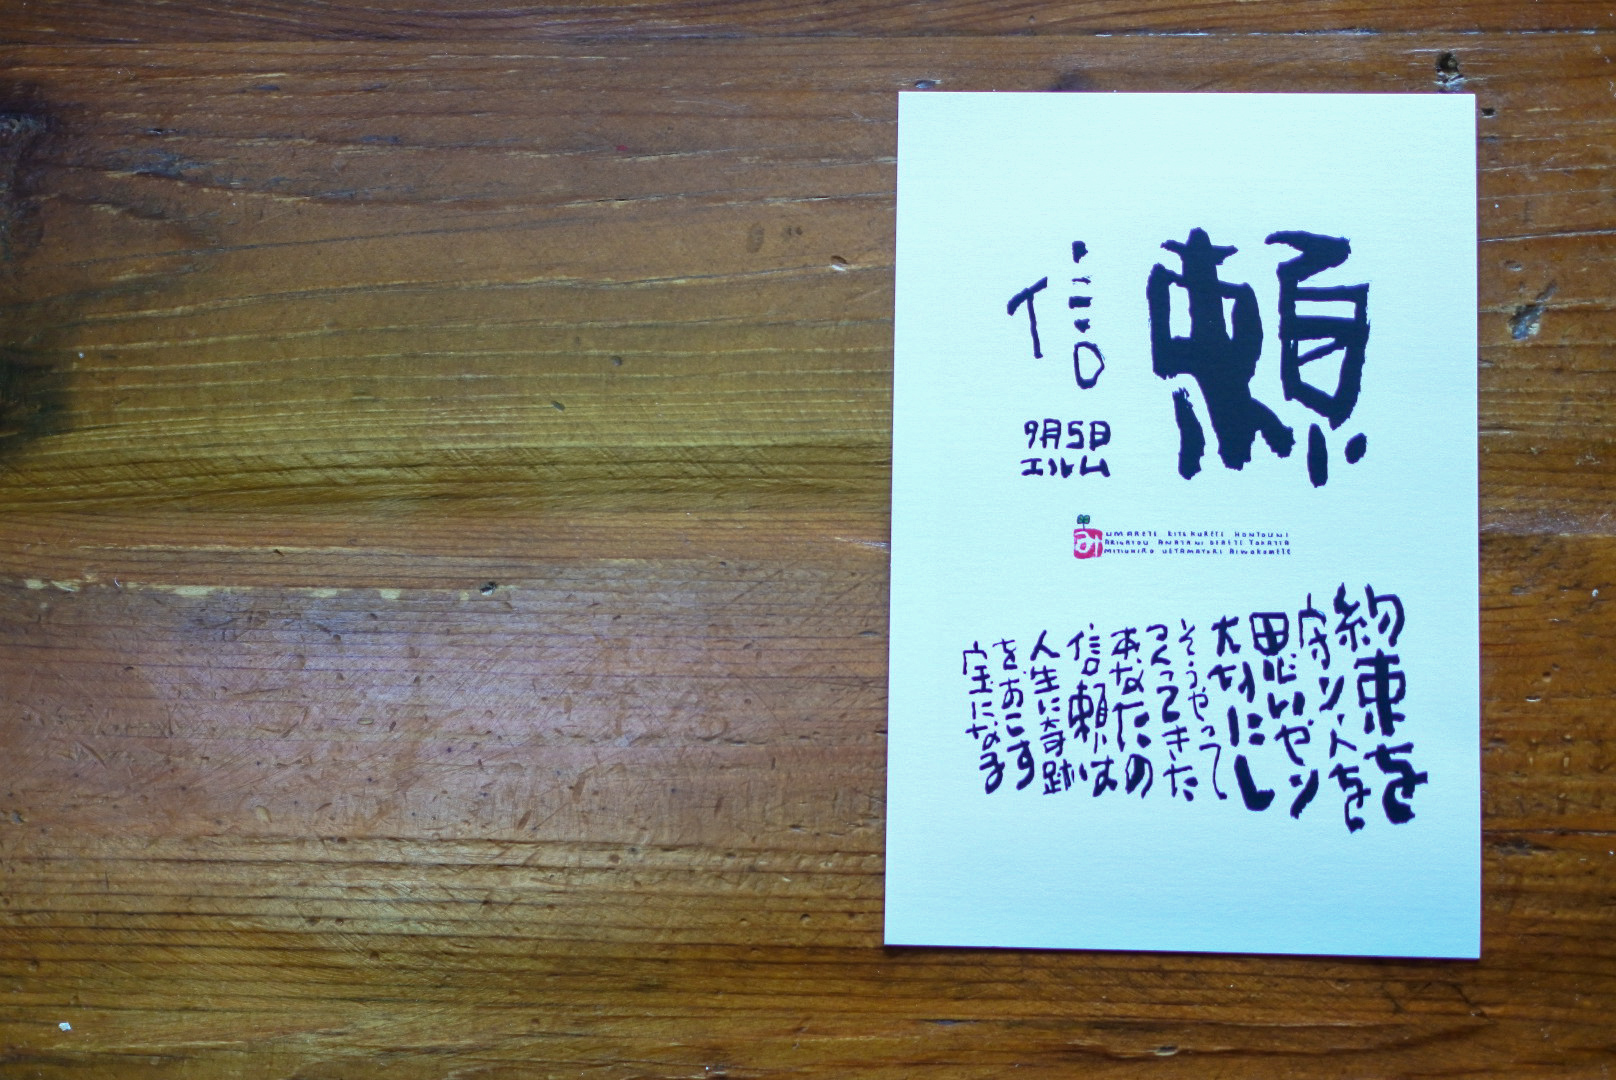 信頼
9月5日
エルム
み
UMARETE KITEKURETE HONTOUNI
ARIGATOU ANATANI DEAETE YOKATTA
AIWOKOMETE
約束を
守り、人を
思いやり
大切にし
そうやって
つくってきた
あなたの
信頼は
人生に奇跡
をおこす
宝になる